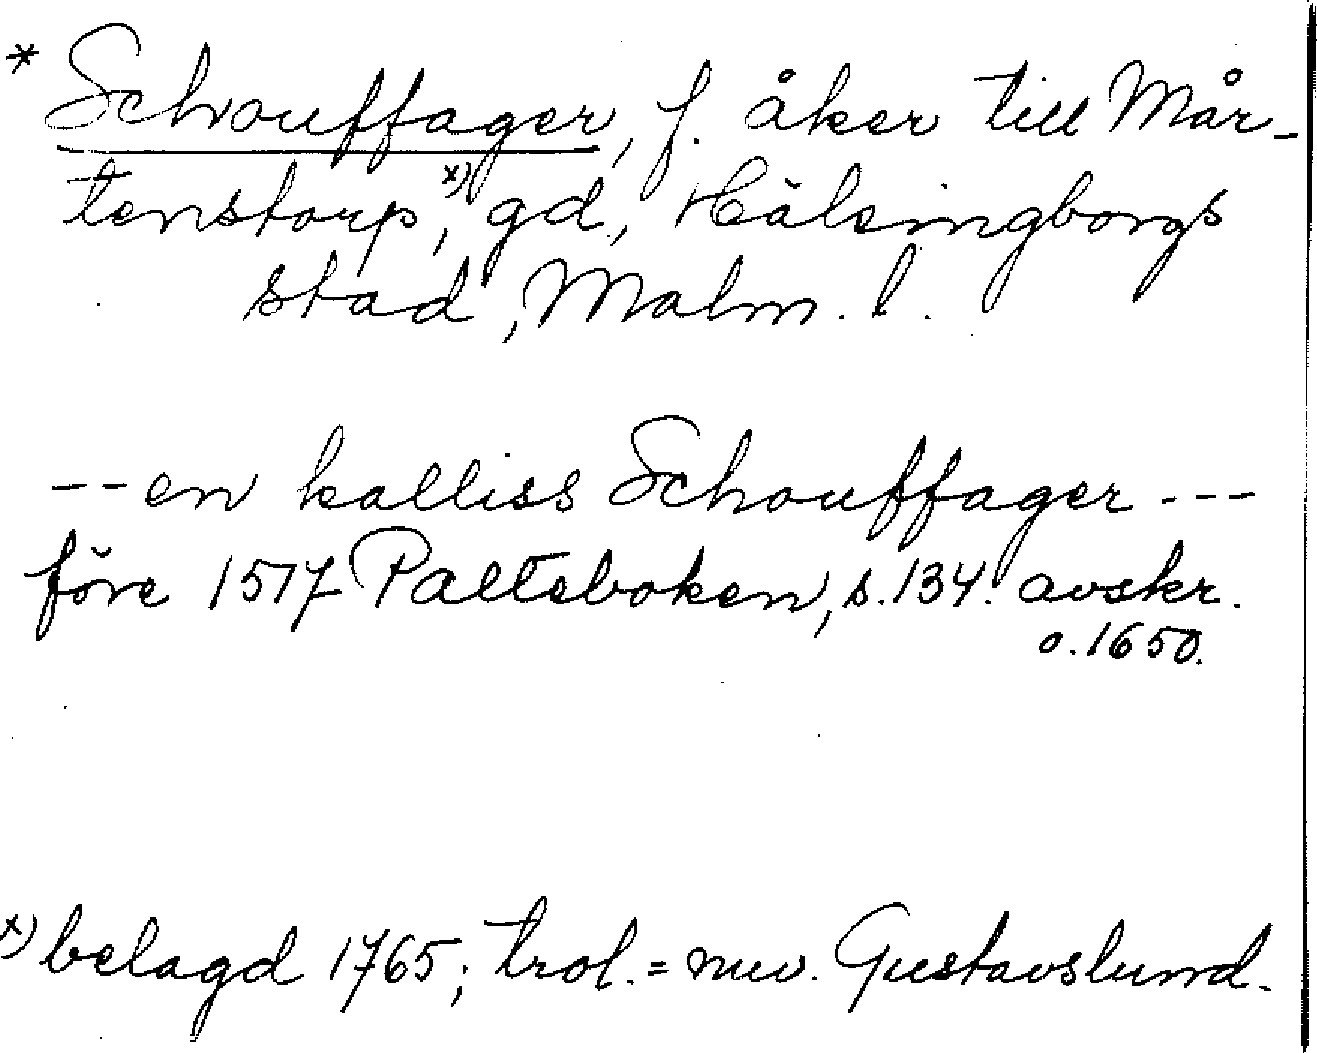 * Schouffager, f. åker till Mår-
tenstorp,ˣ⁾ gd, Hälsingborgs
stad, Malm. l.
-- en kalliss Schouffager ---
före 1517 Palteboken, s. 134. avskr.
o. 1650.
x) belagd 1765; trol. = nuv. Gustavslund.